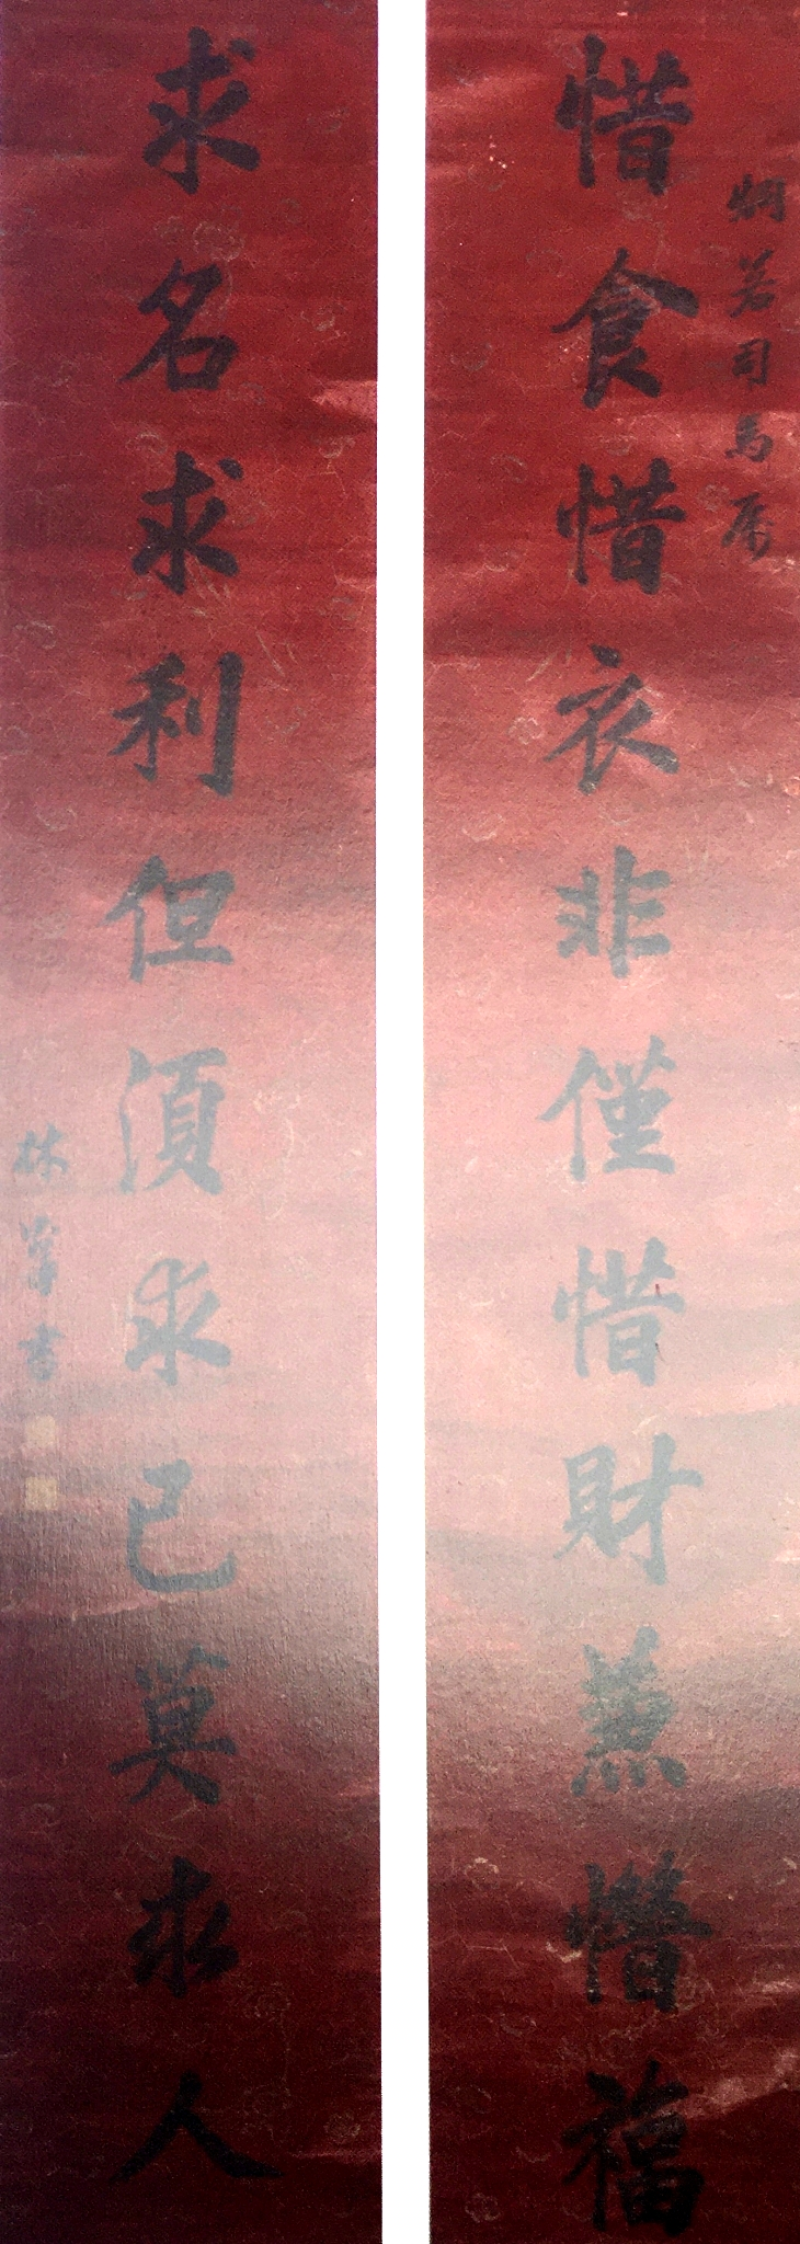 炯若司馬屬
惜食惜衣非僅惜財兼惜福
求名求利但須求己莫求人
林肇書